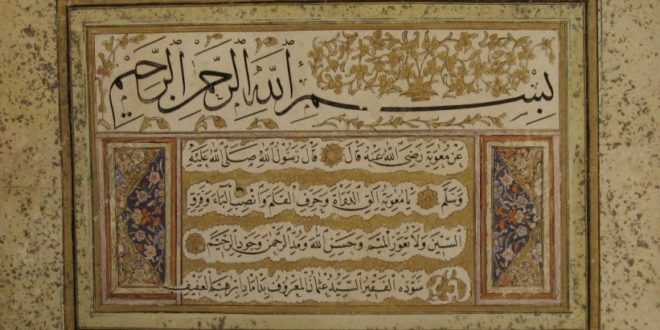 بسم الله الرحمن الرحيم
عن معوية رضى الله عنه قال قال رسول الله صلى الله عليه
وسلم يا معوية الق الدواة وحرف القلم وانصب الباء وفرق
السين ولا تعور الميم وحسن الله ومد الرحمن وجود الرحيم
سوده الفقير السيد عثمان المعروف بداماد العفيف